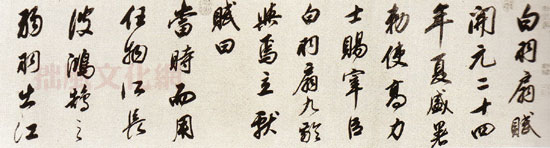 白羽扇賦
開元二十四
年夏盛暑
勅使高力
士賜宰臣
白羽扇九齡
與焉立獻
賦曰
當時而用
任物所長
彼鴻鵠之
弱羽出江
拙風文化網